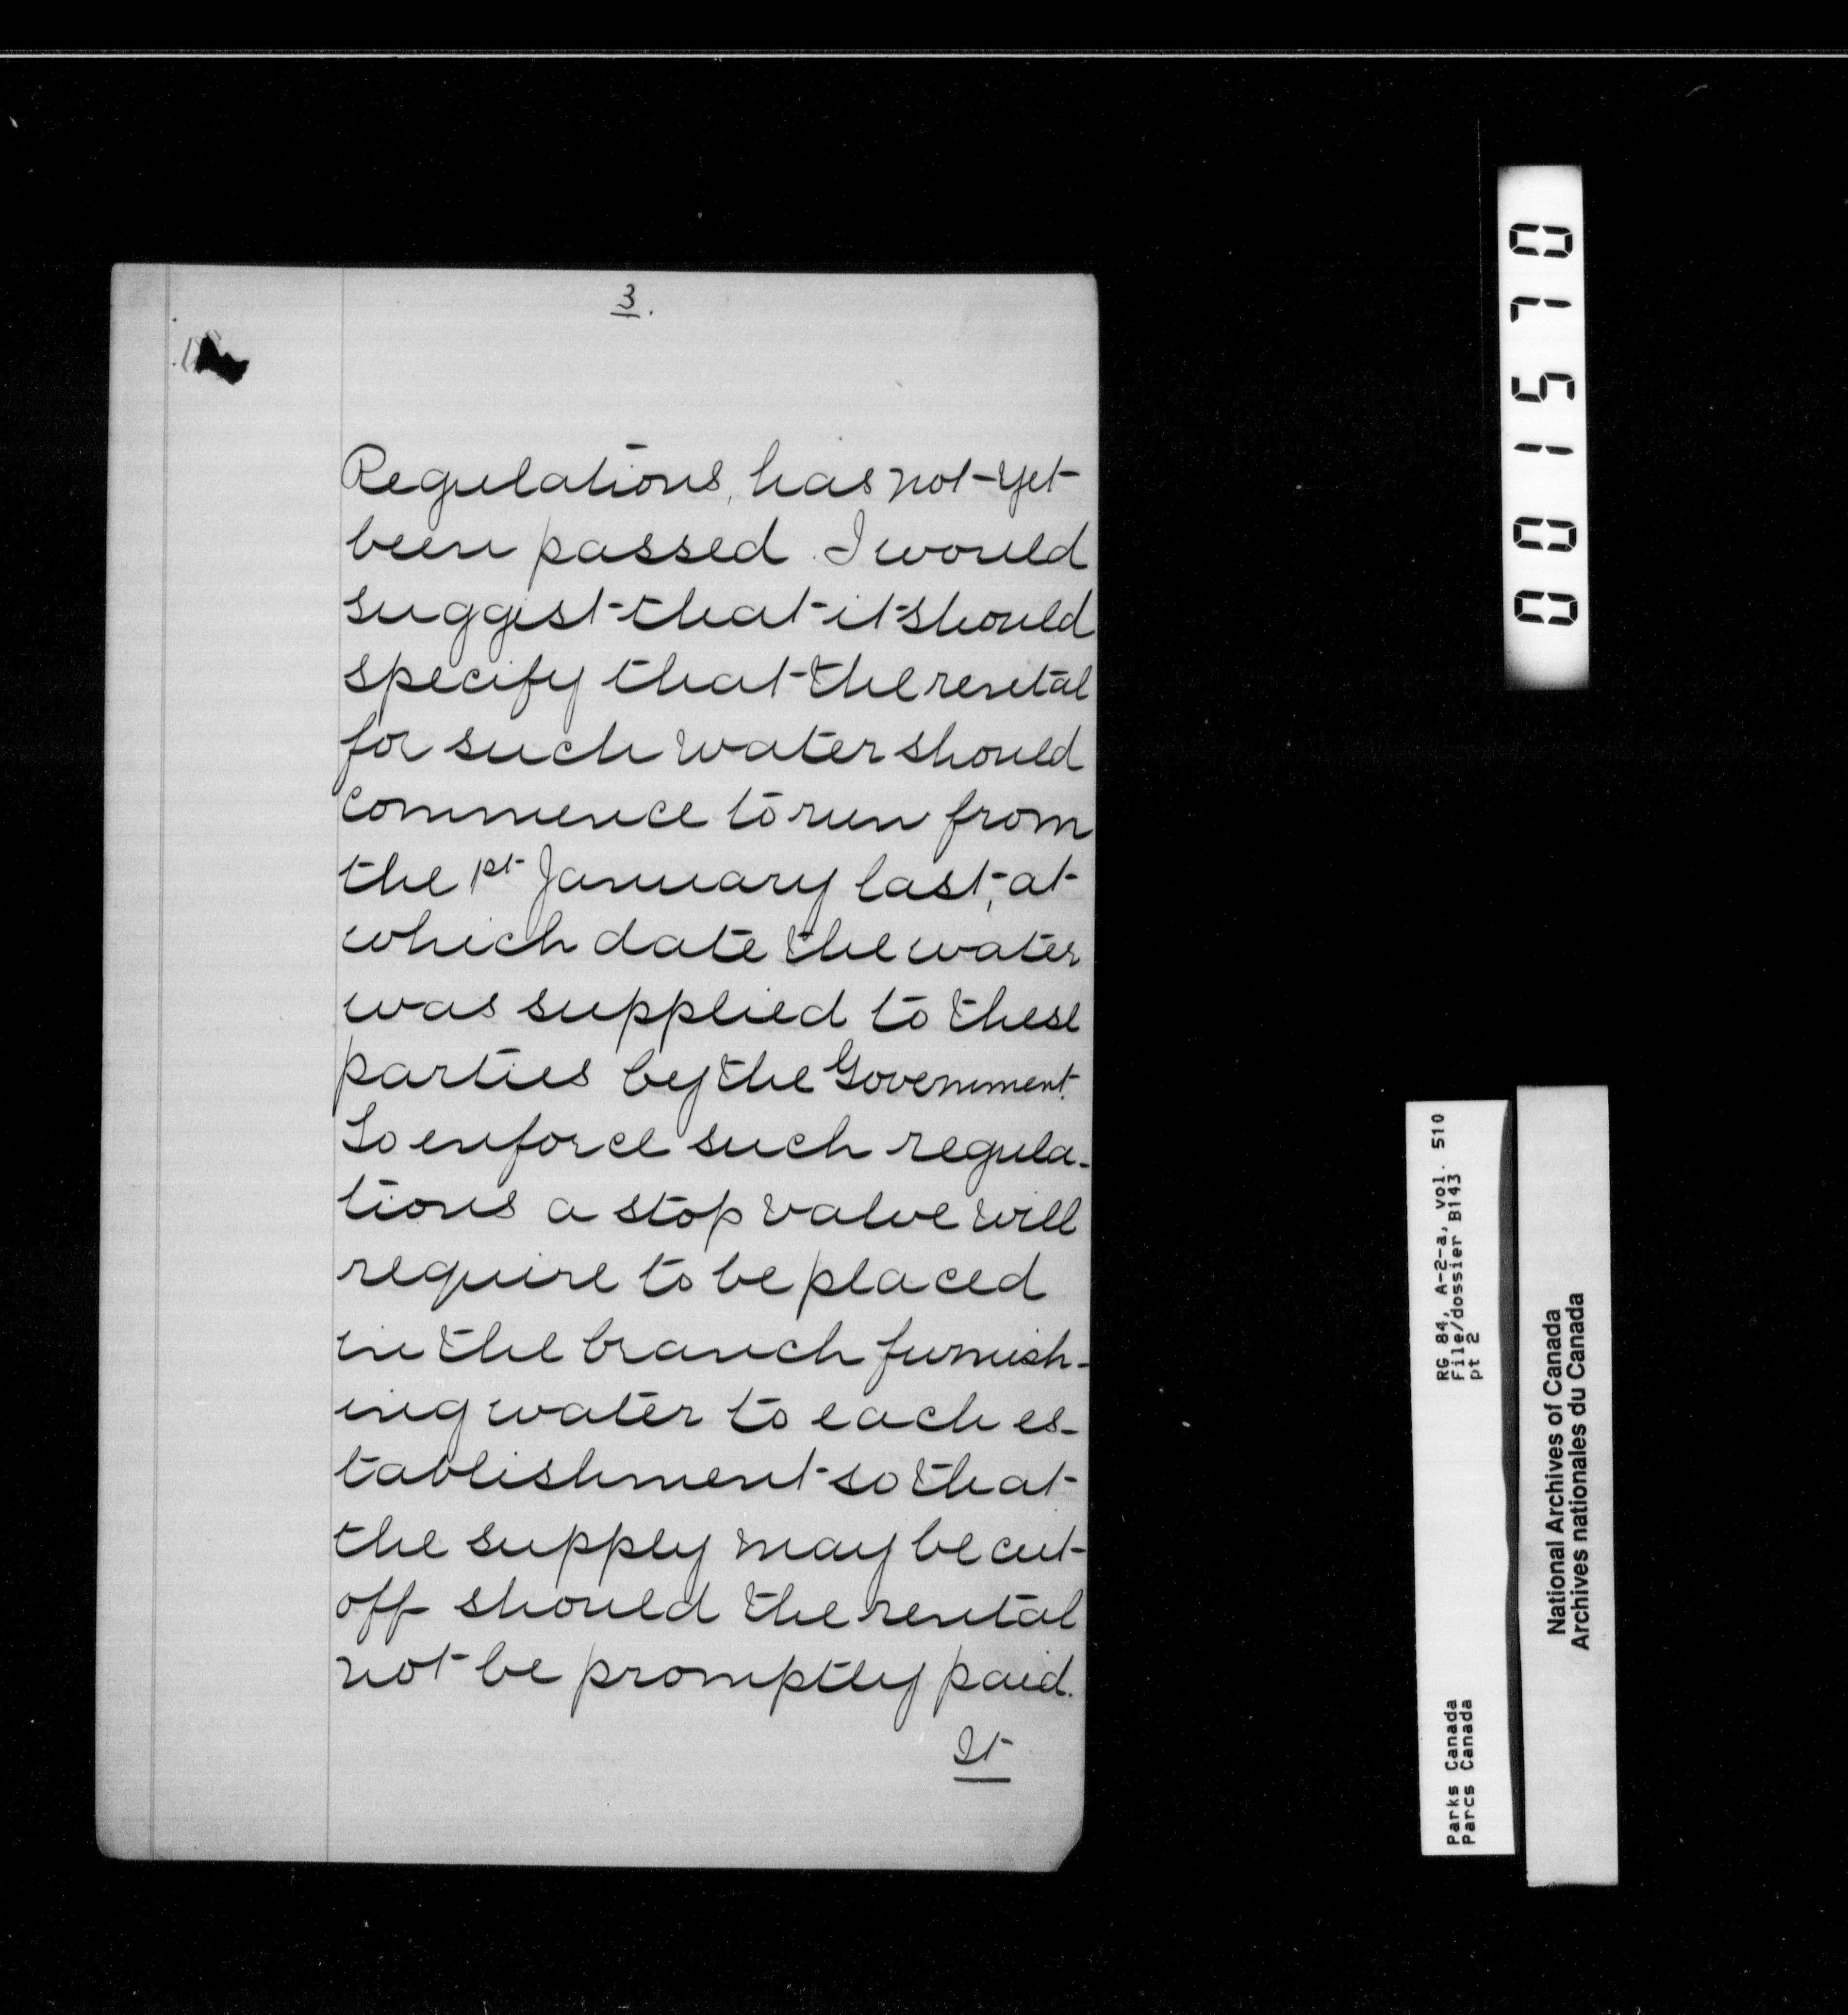 3.
Regulations, has not yet
been passed. I would
suggest that it should
specify that the rental
for such water should
commence to run from
the 1st January last, at
which date the water
was supplied to these
parties by the Government.
To enforce such regula-
tions a stop valve will
require to be placed
in the branch furnish-
ing water to each es-
tablishment so that
the supply may be cut
off should the rental
not be promptly paid.
It
001570
RG 84, A-2-a, vol. 510
File/dossier B143
pt 2
Parks Canada
Parcs Canada
National Archives of Canada
Archives nationales du Canada